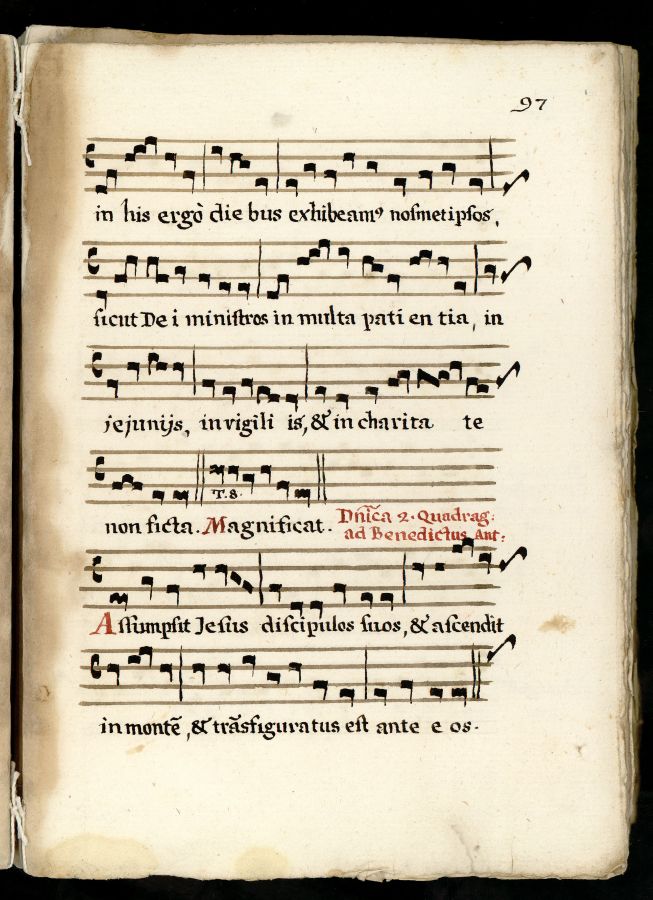 97
in his ergò die bus exhibeamꝰ nosmetipsos,
sicut De i ministros in multa pati en tia, in
jejunijs, in vigili is, & in charita te
T. 8.
non ficta. Magnificat. Dñica 2. Quadrag:
ad Benedictus Ant:
Assumpsit Jesus discipulos suos, & ascendit
in montē, & trãsfiguratus est ante e os.